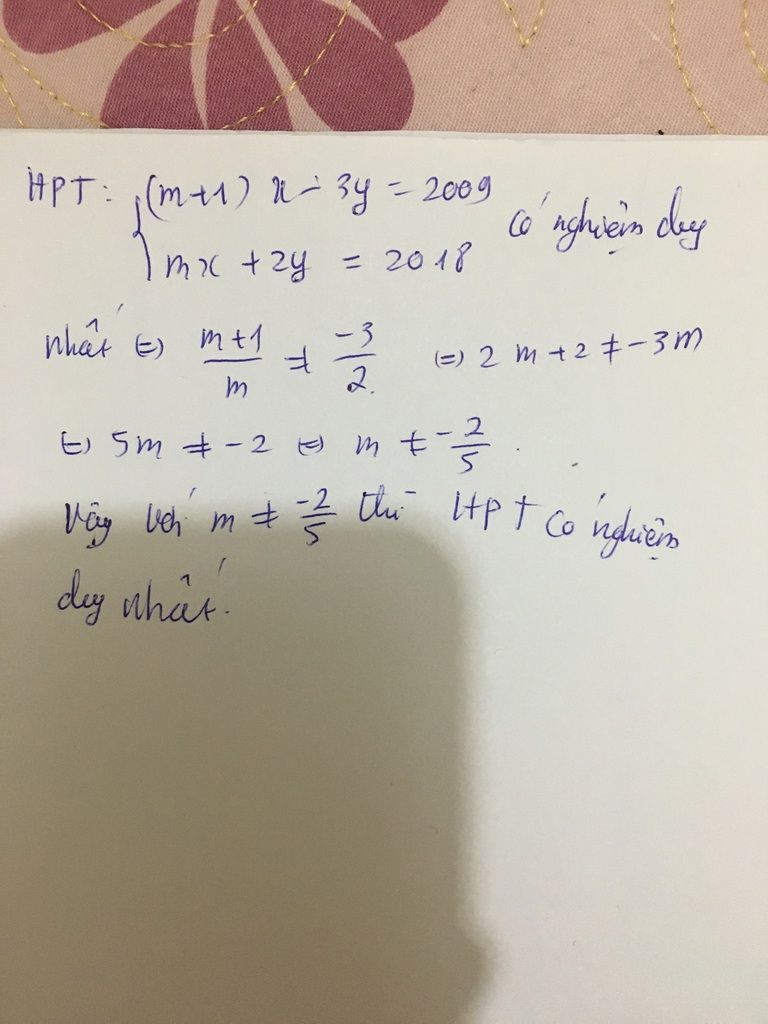 HPT: { (m+1) x - 3y = 2009
mx + 2y = 2018 có nghiệm duy
nhất ⇔ m+1/m ≠ -3/2 ⇔ 2m + 2 ≠ -3m
⇔ 5m ≠ -2 ⇔ m ≠ -2/5.
Vậy với m ≠ -2/5 thì HPT có nghiệm
duy nhất.